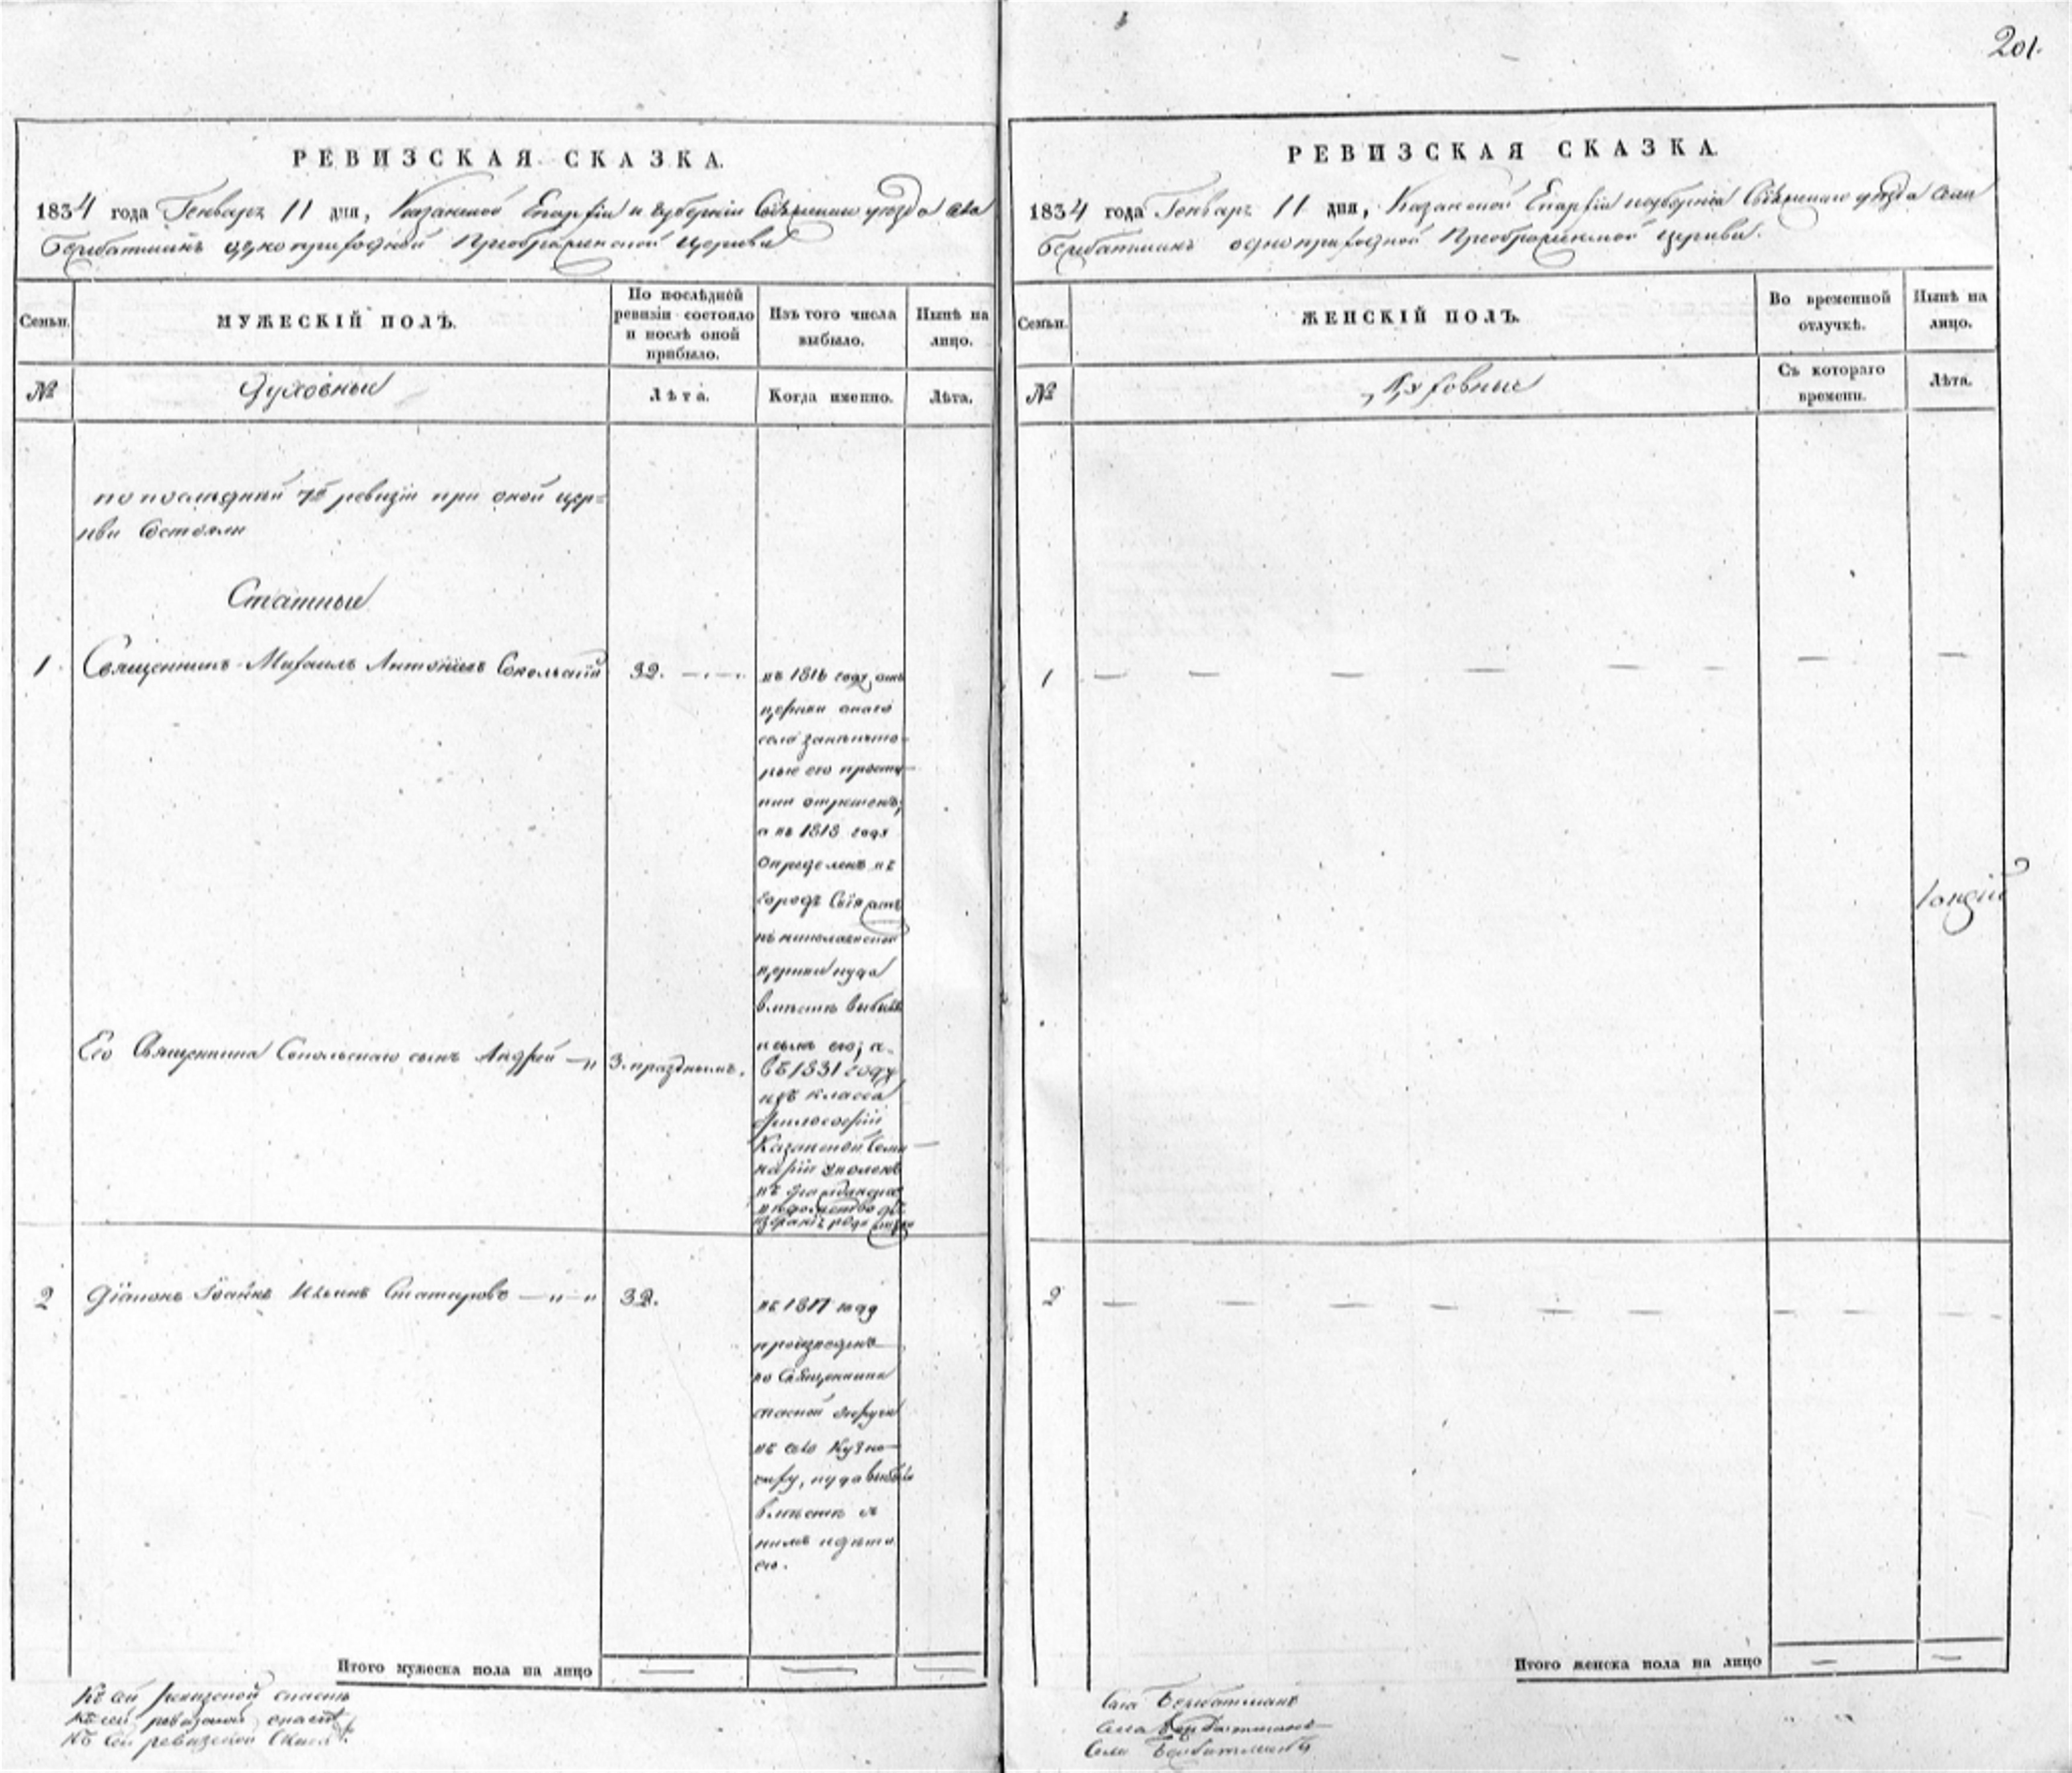 201.
РЕВИЗСКАЯ СКАЗКА.
1834 года Генваря 11 дня, Казанской Епархіи и Губерніи Свіяжскаго уезда села
одноприходной Преображенской Церкви
Семьи.
МУЖЕСКІЙ ПОЛЪ.
По послѣдней
ревизіи состояло
и послѣ оной
прибыло.
Изъ того числа
выбыло.
Нынѣ на
лицо.
№
Духовныи
Лѣта.
Когда именно.
Лѣта.
по последней 7й ревизіи при оной цер=
кви состояли
Статныи
1 Священникъ Михаилъ Антоніевъ Сокольскій 32.
въ 1816 году отъ
церкви онаго
села за некото-
рые его проступ-
ки отрешенъ,
а въ 1818 году
определенъ въ
городъ Свіяжскъ
къ николаевской
церкви куда
вместе выбылъ
Его Священника Сокольскаго сынъ Андрей 3.
и сынъ его; а
въ 1831 году
изъ класса
философіи
Казанской Семи-
наріи уволенъ
2 Діаконъ Іоаннъ Ильинъ Статировъ 32.
въ 1817 году
произведенъ
во Священника
спасской округи
въ село Кузне-
чиху, куда выбыли
вместе съ
нимъ и дети
его.
Итого мужеска пола на лицо
Къ сей ревизской сказке
Къ сей ревизской сказке
Къ сей ревизской сказке
РЕВИЗСКАЯ СКАЗКА.
1834 года Генваря 11 дня, Казанской Епархіи и губерніи Свіяжскаго уезда села
одноприходной Преображенской церкви.
Семьи.
ЖЕНСКІЙ ПОЛЪ.
Во временной
отлучкѣ.
Нынѣ на
лицо.
№
Духовные
Съ котораго
времени.
Лѣта.
1
2
Итого женска пола на лицо
Села
села
Села